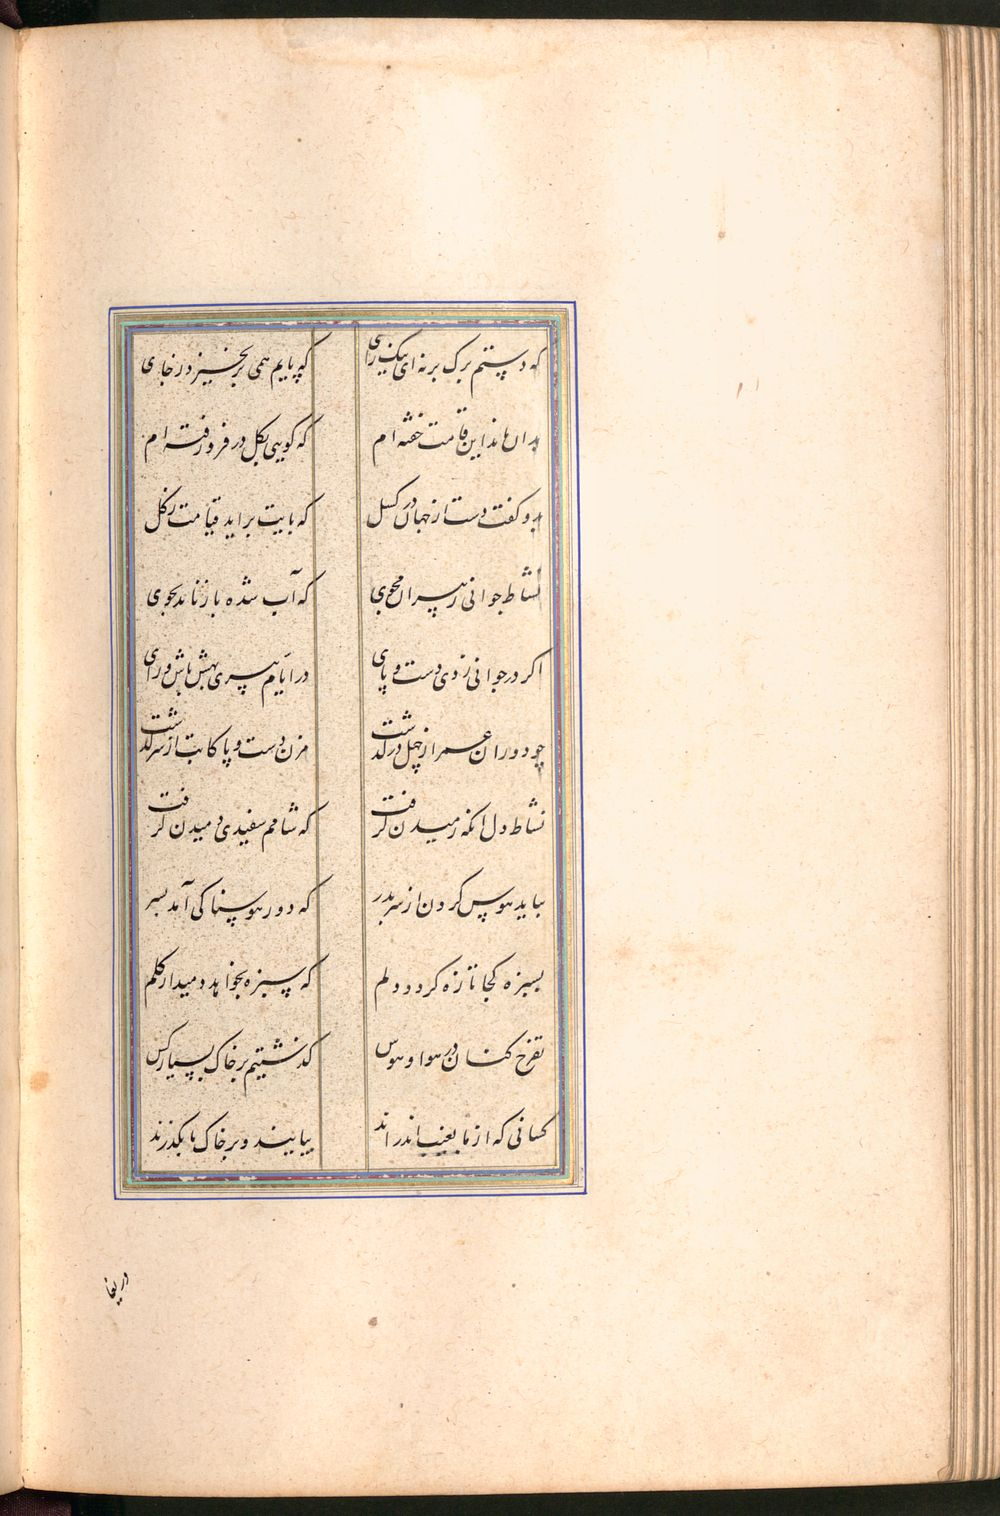 که دستم برک برنه ای نیک رای که پایم همی برنخیزد ز جای
بدان ماند این قامت خفته ام که کویی بکل در فرو رفته ام
بدو کفت دست از جهان در کسل که پایت براید قیامت ز کل
نشاط جوانی ز پیران مجوی که آب شده باز ناید بجوی
اکر در جوانی زدی دست و پای در ایام پیری بهش باش و رای
چو دوران عمر از چهل درکذشت مزن دست و پا کابت از سر کذشت
نشاط دل انکه رمیدن کرفت که شامم سفیدی دمیدن کرفت
بباید هوس کردن از سر بدر که دور هوسناکی آمد بسر
بسبزه کجا تازه کردد دلم که سبزه بخواهد دمید از کلم
تفرج کنان در هوا و هوس کذشتیم بر خاک بسیار کس
کسانی که از ما بغیب اندر اند بیایند و بر خاک ما بکذرند
دریغا